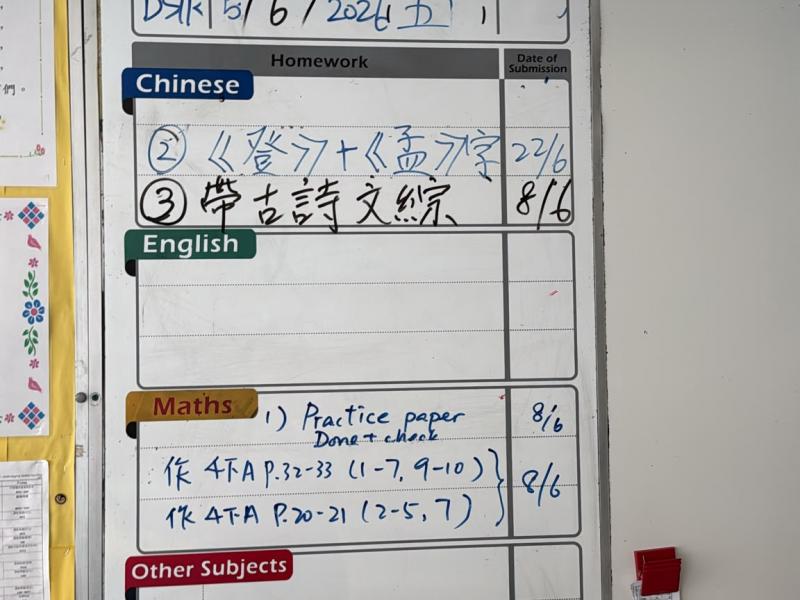 5/6/2026 五
Homework
Date of Submission
Chinese
② 《登》+《孟》字 22/6
③ 帶古詩文綜 8/6
English
Maths
1) Practice paper 8/6
Done + check
作 4下A P.32-33 (1-7, 9-10)
8/6
作 4下A P.20-21 (2-5, 7)
Other Subjects
們。